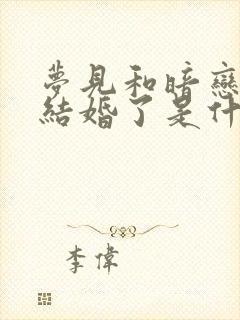 夢見和暗戀
結婚了是什
李偉